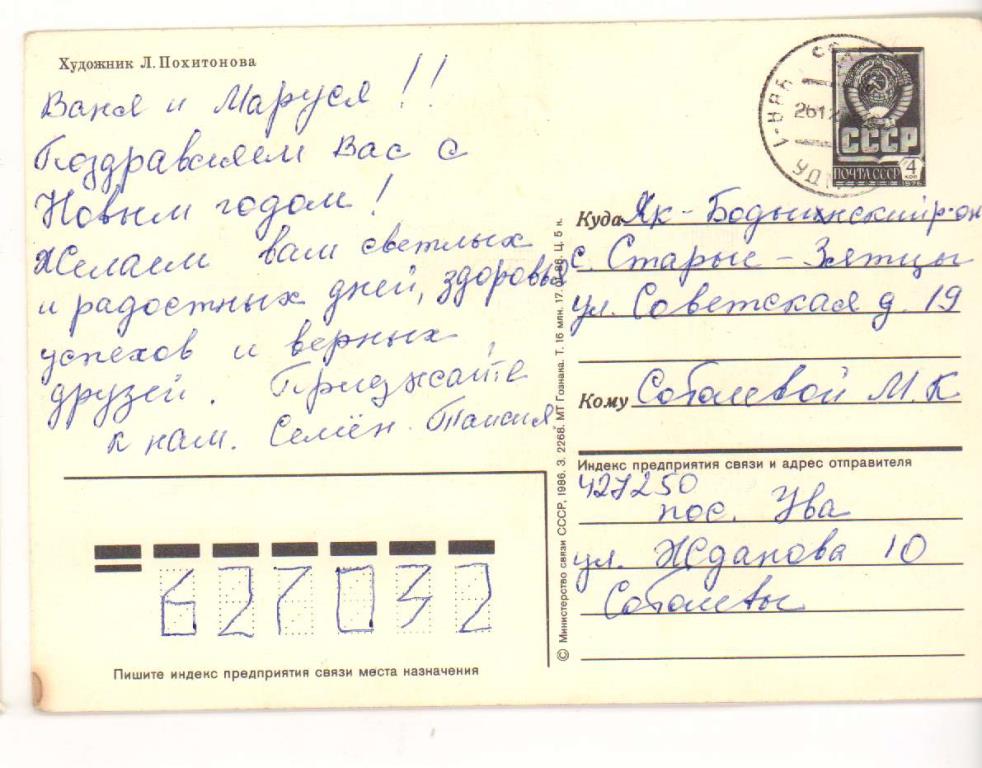 Художник Л. Похитонова
Ваня и Маруся!!
Поздравляем Вас с
Новым годом!
Желаем вам светлых
и радостных дней, здоровья
успехов и верных
друзей. Приезжайте
к нам. Семён. Таисия
СССР
ПОЧТА СССР
4 коп
1976
Куда Як-Бодьинский р-он
с. Старые-Зятцы
ул. Советская д. 19
Кому Соболевой М. К
Индекс предприятия связи и адрес отправителя
427250
пос. Ува
ул. Жданова 10
Соболевы
627032
Пишите индекс предприятия связи места назначения
© Министерство связи СССР, 1986. З. 2268. МТ Гознака. Т. 16 млн. 17.01.86. Ц. 5 к.